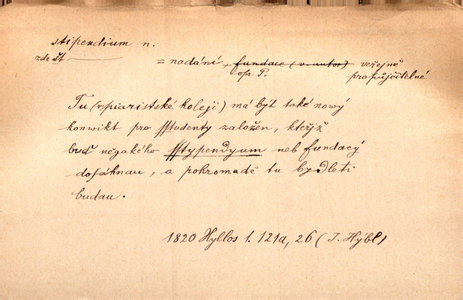 stipendium n.
zde št
= nadání, fundace (v. autor) veřejně
op. P. propůjčitelné
Tu (v piaristské koleji) má být také nový
konwikt pro Studenty založen, kterýž
buď nějakého Stypendyum neb fundacý
dosáhnau, a pohromadě tu bydleti
budau.
1820 Hyllos 1. 121a, 26 (J. Hýbl)